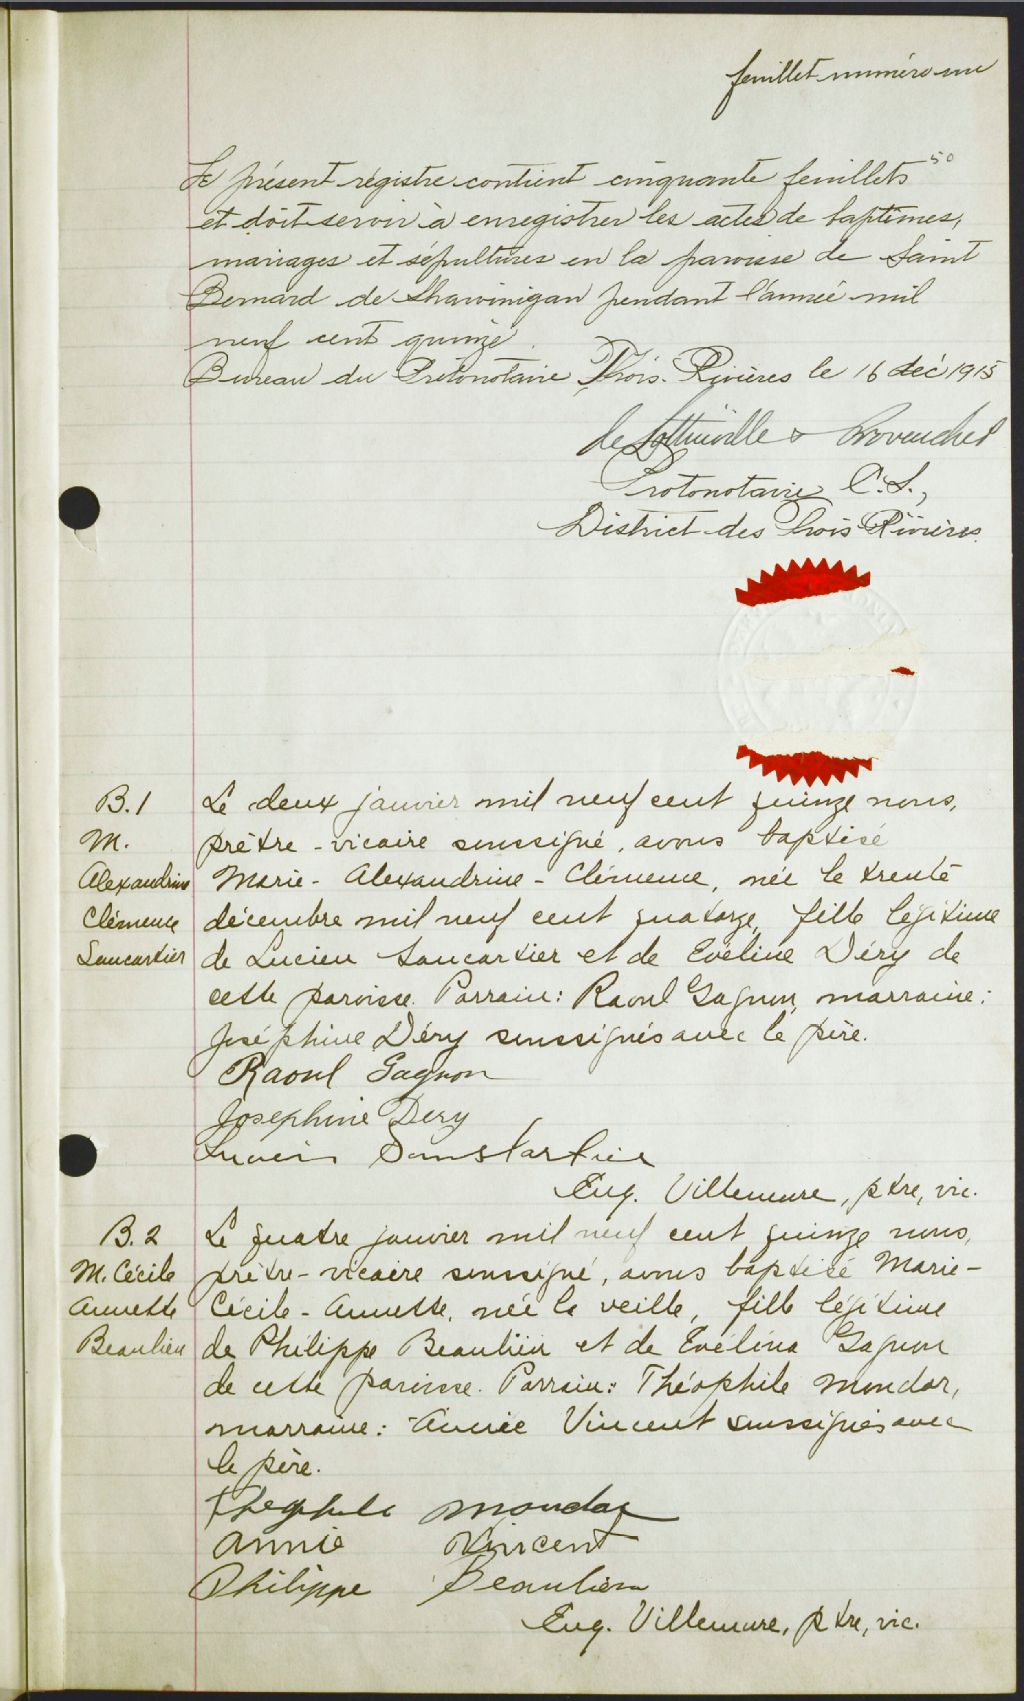 feuillet numéro un
Le présent régistre contient cinquante feuillets 50
et doit servir à enregistrer les actes de baptêmes,
mariages et sépultures en la paroisse de Saint
Bernard de Shawinigan pendant l'année mil
neuf cent quinze.
Bureau du Protonotaire Trois-Rivières le 16 déc 1915
de Lottinville & Provencher
Protonotaire C.S.,
District des Trois-Rivières.
B.1
M.
Alexandrine
Clémence
Lancartier
Le deux janvier mil neuf cent quinze nous,
prêtre-vicaire soussigné, avons baptisé
Marie-Alexandrine-Clémence, née le trente
décembre mil neuf cent quatorze, fille légitime
de Lucien Lancartier et de Evéline Déry de
cette paroisse. Parrain: Raoul Gagnon, marraine:
Joséphine Déry soussignés avec le père.
Raoul Gagnon
Josephine Dery
Lucien
Eug. Villemure, ptre, vic.
B.2
M. Cécile
Annette
Beaulieu
Le quatre janvier mil neuf cent quinze nous,
prêtre-vicaire soussigné, avons baptisé Marie-
Cécile-Annette, née la veille, fille légitime
de Philippe Beaulieu et de Evélina Gagnon
de cette paroisse. Parrain: Théophile Mondor,
marraine: Vincent soussignés avec
le père.
Theophile Mondor
Annie Vincent
Philippe Beaulieu
Eug. Villemure, ptre, vic.